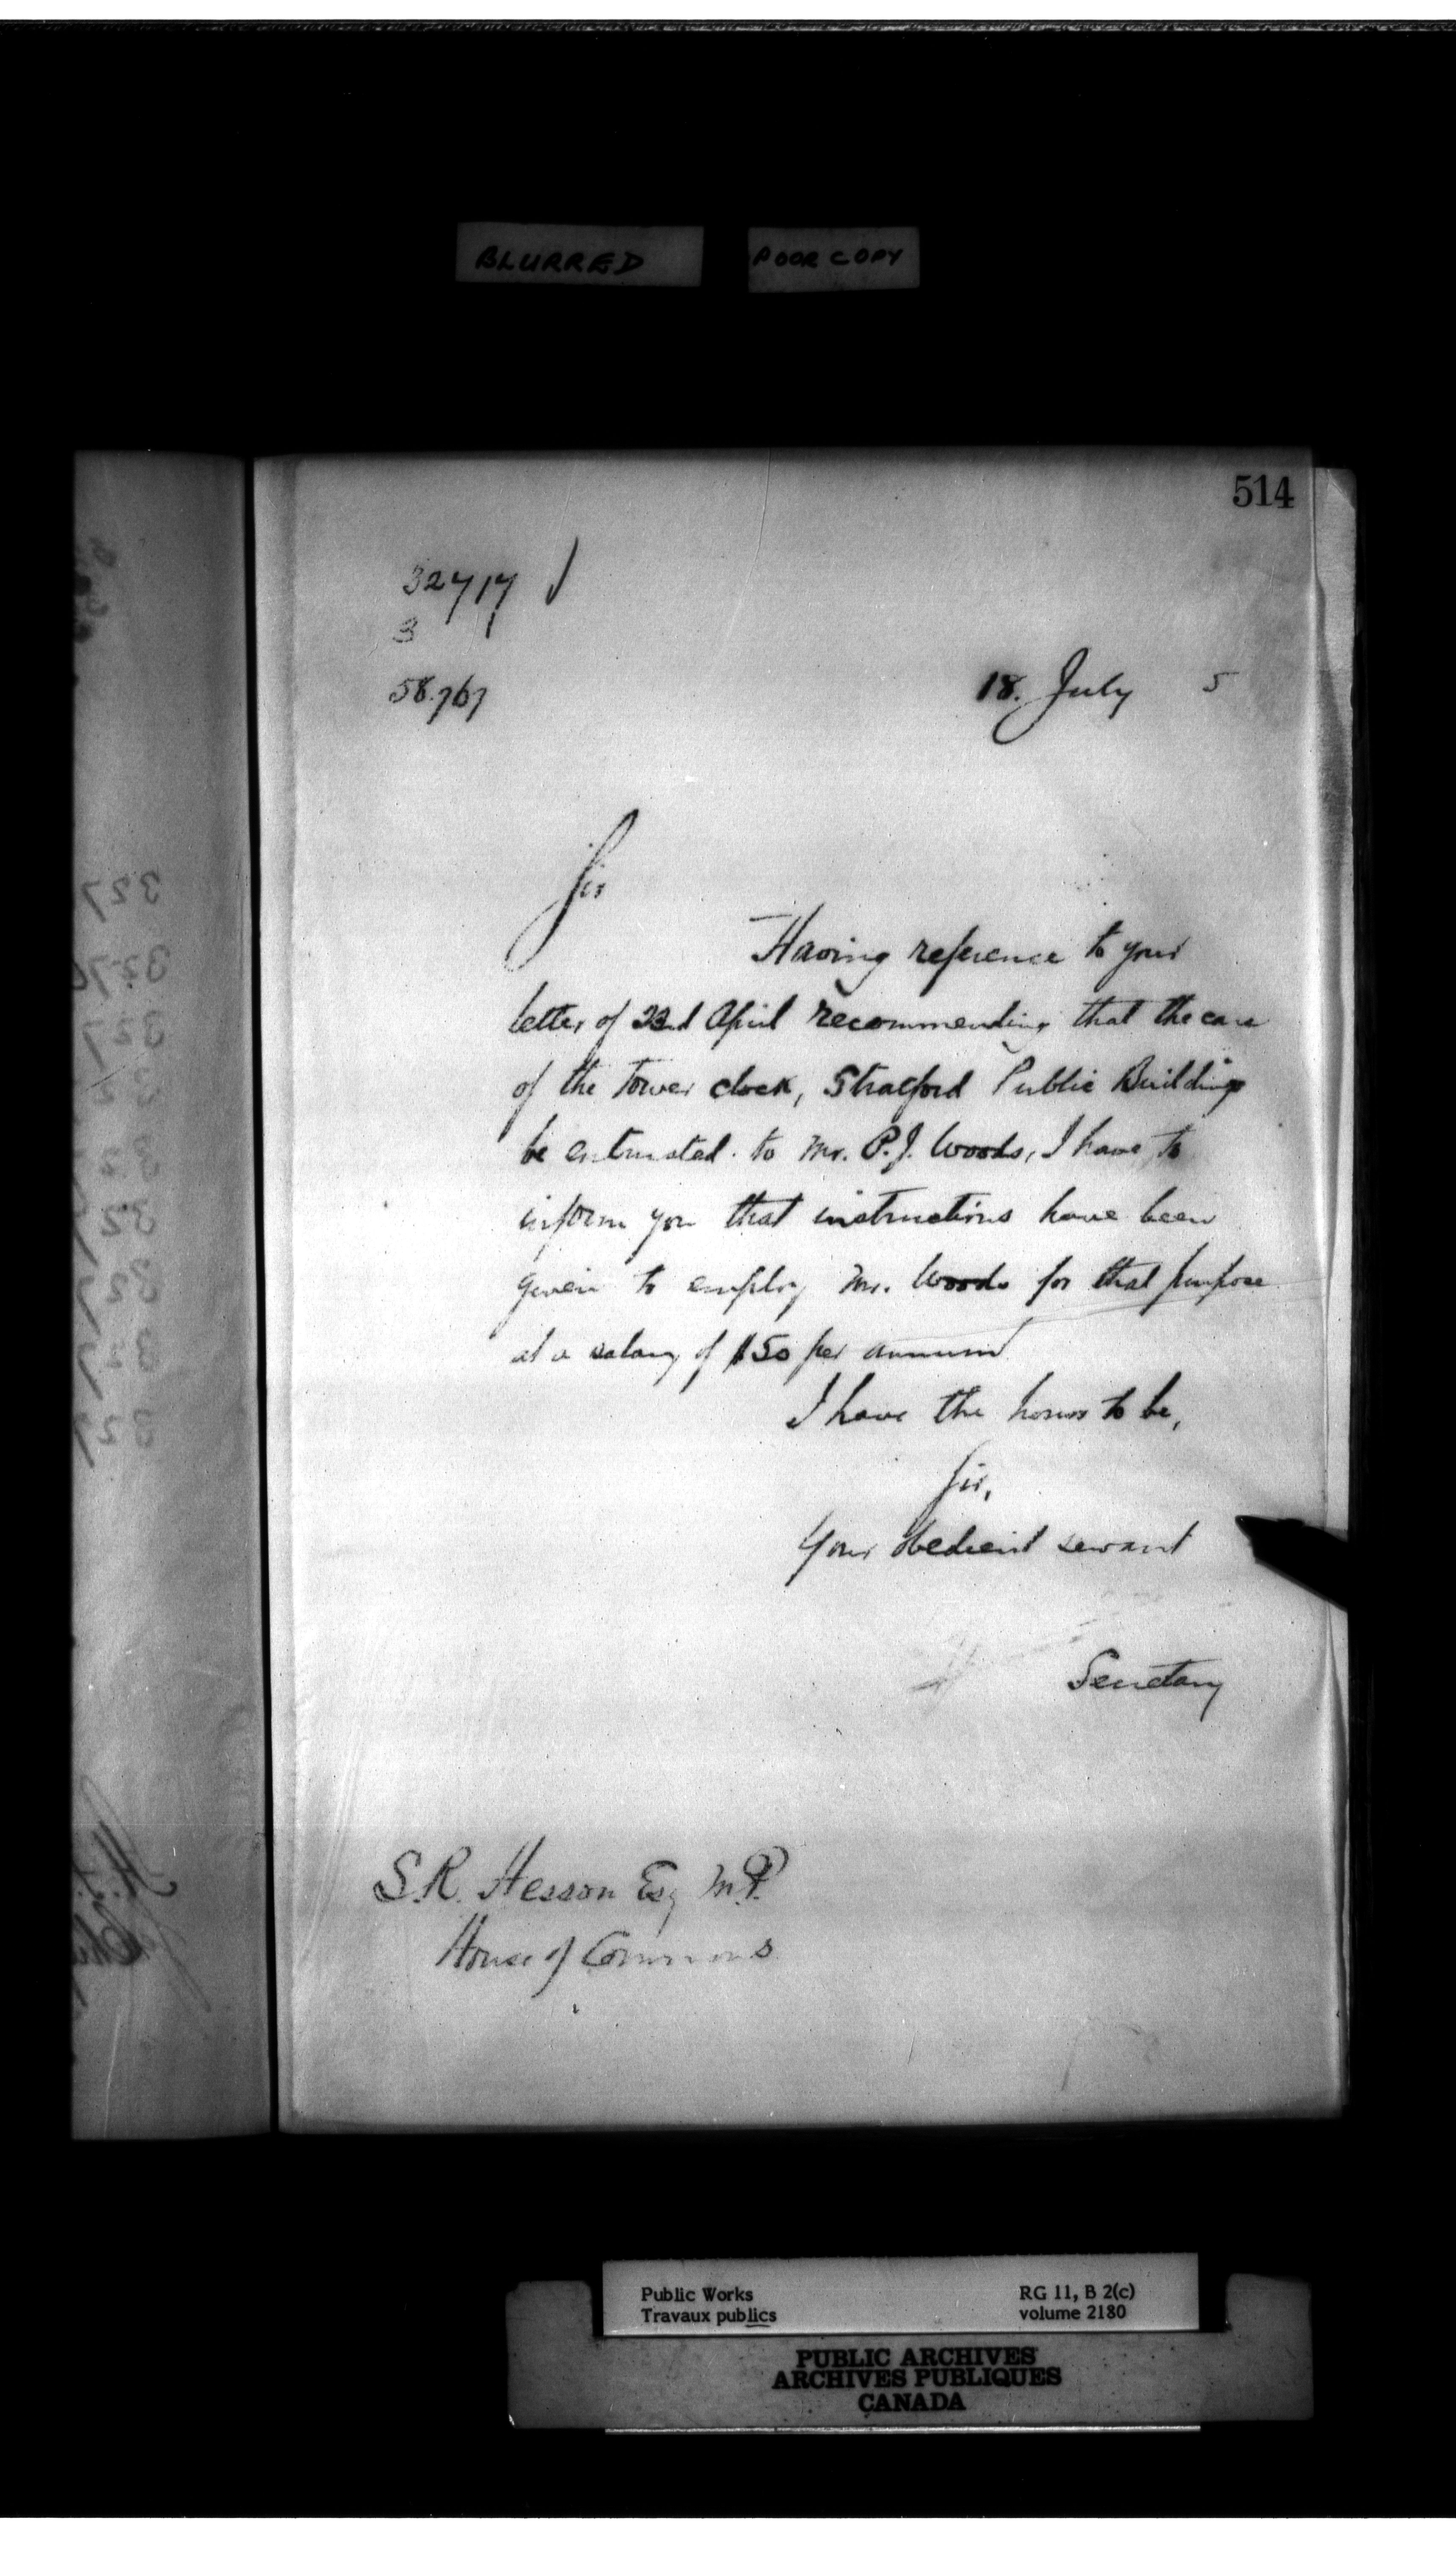 BLURRED POOR COPY
514
32717
3 1
58.767
18. July 5
Sir
Having reference to your
letter of 23rd April recommending that the care
of the Tower clock, Stratford Public Building
be entrusted to Mr. P.J. Woods, I have to
inform you that instructions have been
given to employ Mr. Woods for that purpose
at a salary of $50 per annum
I have the honor to be,
Sir,
Your obedient servant
Secretary
S.R. Hesson Esq M.P.
House of Commons
Public Works RG 11, B 2(c)
Travaux publics volume 2180
PUBLIC ARCHIVES
ARCHIVES PUBLIQUES
CANADA